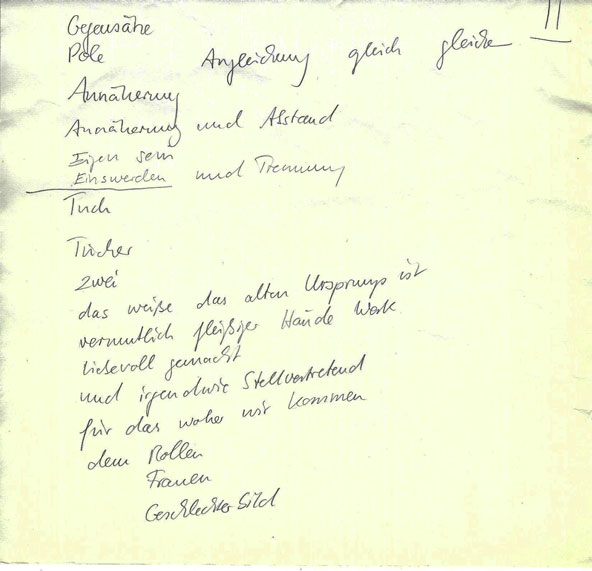 11
Gegensätze
Pole Angleichung gleich gleiche
Annäherung
Annäherung und Abstand
Eigen sein
Einswerden und Trennung
Tuch
Tücher
zwei
das weiße das alten Ursprungs ist
vermutlich fleißiger Hände Werk
liebevoll gemacht
und irgendwie Stellvertretend
für das woher wir kommen
dem Rollen
Frauen
Geschlechterbild